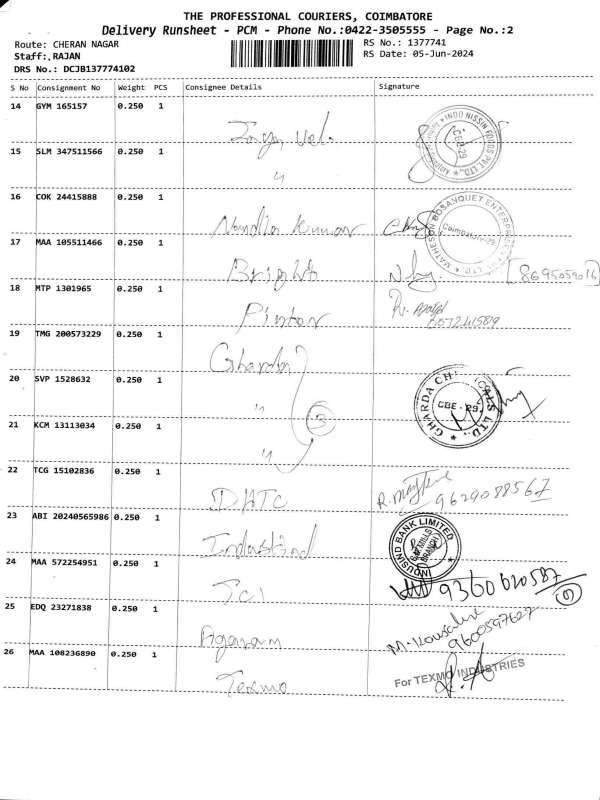 THE PROFESSIONAL COURIERS, COIMBATORE
Delivery Runsheet - PCM - Phone No.:0422-3505555 - Page No.:2
Route: CHERAN NAGAR
RS No.: 1377741
Staff:.RAJAN
RS Date: 05-Jun-2024
DRS No.: DCJB137774102
S No Consignment No Weight PCS Consignee Details Signature
14 GYM 165157 0.250 1
INDO NISSIN FOODS PVT. LTD. CBE-29
15 SLM 347511566 0.250 1
"
16 COK 24415888 0.250 1
Nandha Kumar
MATHESON BOSANQUET ENTERPRISES LTD. Coimbatore-29
17 MAA 105511466 0.250 1
Bright
8695059016
18 MTP 1301965 0.250 1
19 TMG 200573229 0.250 1
Gharda
20 SVP 1528632 0.250 1
" 3
GHARDA CHEMICALS LTD., CBE - 29.
21 KCM 13113034 0.250 1
"
22 TCG 15102836 0.250 1
9629088567
23 ABI 20240565986 0.250 1
Indusind
INDUSIND BANK LIMITED
24 MAA 572254951 0.250 1
Tci
9360620587
25 EDQ 23271838 0.250 1
Agaram
M. Kousalya
9600597627
26 MAA 108236890 0.250 1
Texmo
For TEXMO INDUSTRIES